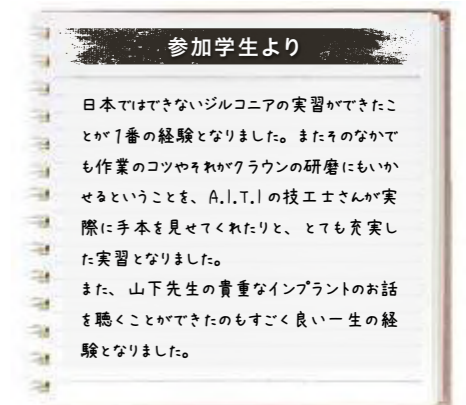 参加学生より
日本ではできないジルコニアの実習ができたこ
とが1番の経験となりました。またそのなかで
も作業のコツやそれがクラウンの研磨にもいか
せるということを、A.I.T.Iの技工士さんが実
際に手本を見せてくれたりと、とても充実し
た実習となりました。
また、山下先生の貴重なインプラントのお話
を聴くことができたのもすごく良い一生の経
験となりました。